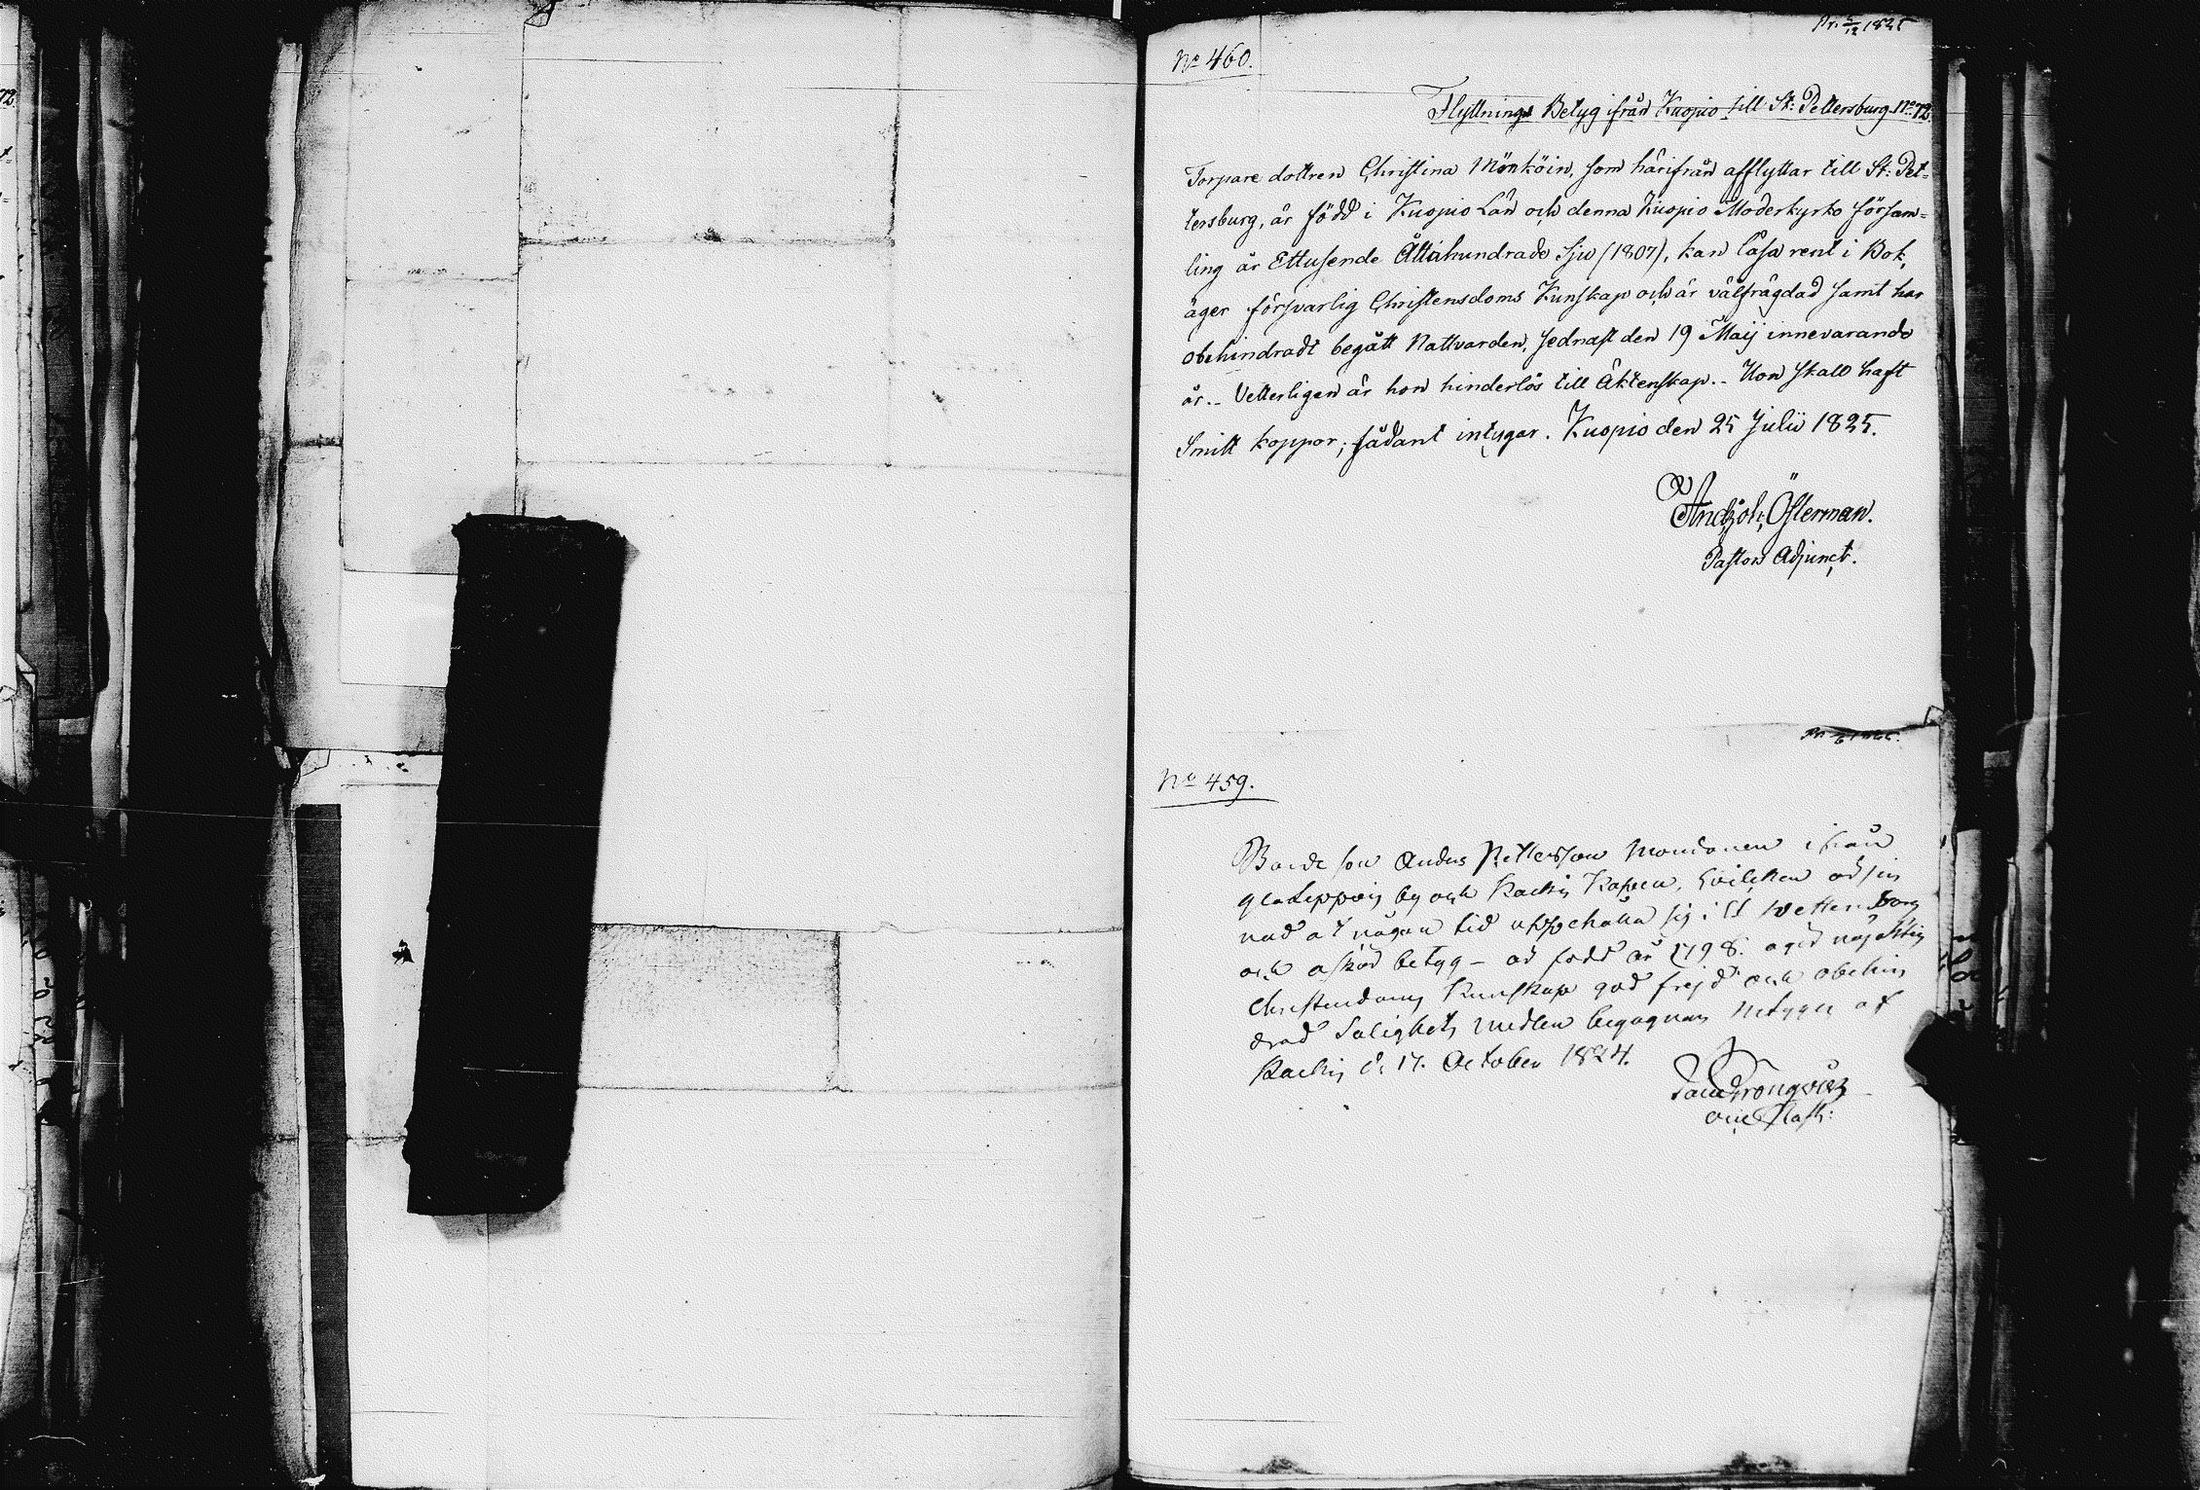 Pr. 5/12 1825
No 460.
Flyttnings Betyg ifrån Kuopio till St: Pettersburg No 72.
Torpare dottren Christina Mönköin, som härifrån afflyttar till St: Pet=
tersburg, är född i Kuopio Län och denna Kuopio Moderkyrko försam=
ling år Ettusende Åttahundrade Sju (1807), kan läsa rent i Bok,
äger försvarlig Christensdoms Kunskap och är välfrägdad samt har
obehindradt begått Nattvarden, sednast den 19 Maij innevarande
år.- Vetterligen är hon hinderlös till Äktenskap.- Hon skall haft
Smitt koppor; sådant intygar. Kuopio den 25 Julii 1825.
Österman.
Pastors Adjunct.
No 459.
Bonde son Anders Pettersson ifrån
by och Kapell, hvilcken
nad at någon tid uppehålla sig i St Pettersborg
och betyg - är född år 1798. äger nöjaktig
Christendoms Kunskap god frejd och obehin
drad Salighets medlens begagnan betygar af
d. 17. October 1824.